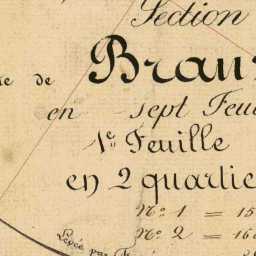 Section
de Bran
en sept Feui
1e Feuille
en 2 quartie
No. 1 = 15
No. 2 = 16
Levée par